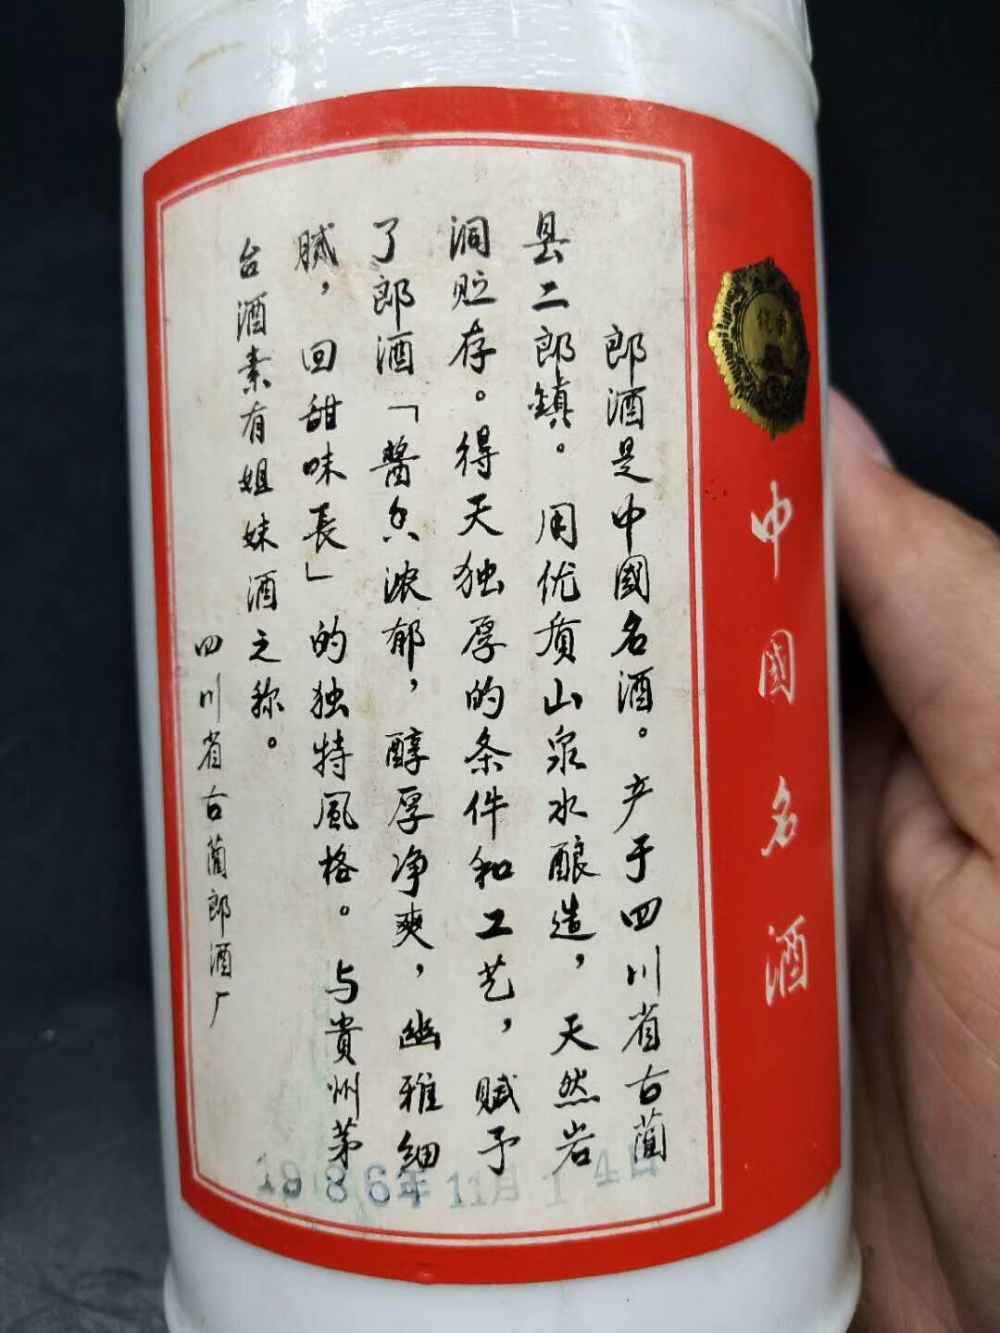 中國名酒
郎酒是中國名酒。产于四川省古蔺
县二郎鎮。用优质山泉水酿造，天然岩
洞贮存。得天独厚的条件和工艺，赋予
了郎酒「醬香浓郁，醇厚净爽，幽雅细
腻，回甜味長」的独特風格。与貴州茅
台酒素有姐妹酒之称。
四川省古蔺郎酒厂
1986年11月14日